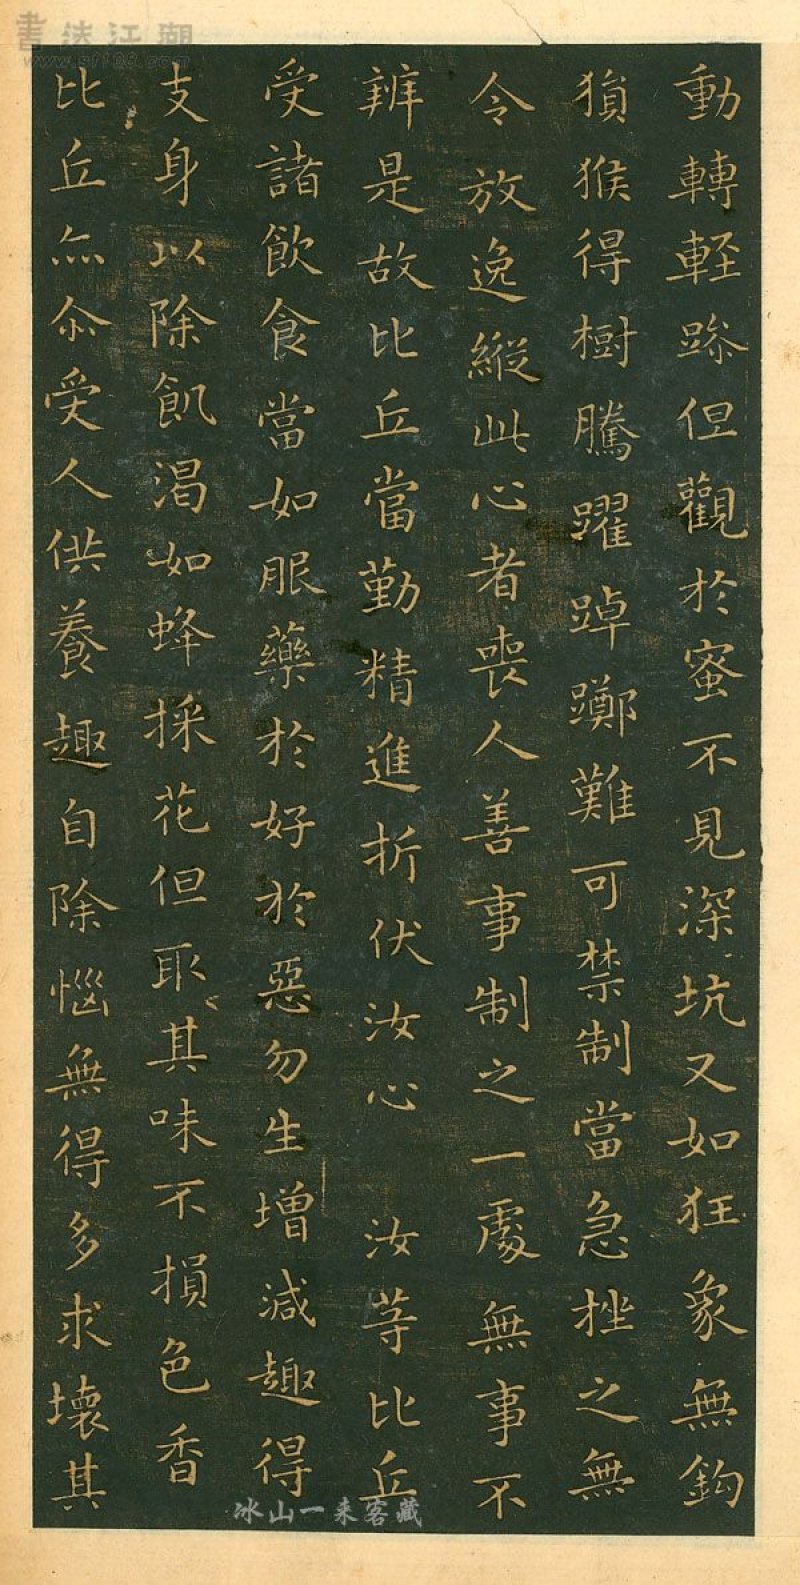 動轉輕躁但觀於蜜不見深坑又如狂象無鈎
猨猴得樹騰躍踔躑難可禁制當急挫之無
令放逸縱此心者喪人善事制之一處無事不
辦是故比丘當勤精進折伏汝心　汝等比丘
受諸飲食當如服藥於好於惡勿生增減趣得
支身以除飢渴如蜂採花但取其味不損色香
比丘亦尒受人供養趣自除惱無得多求壞其
書法江湖
www.sf108.com
冰山一来客藏